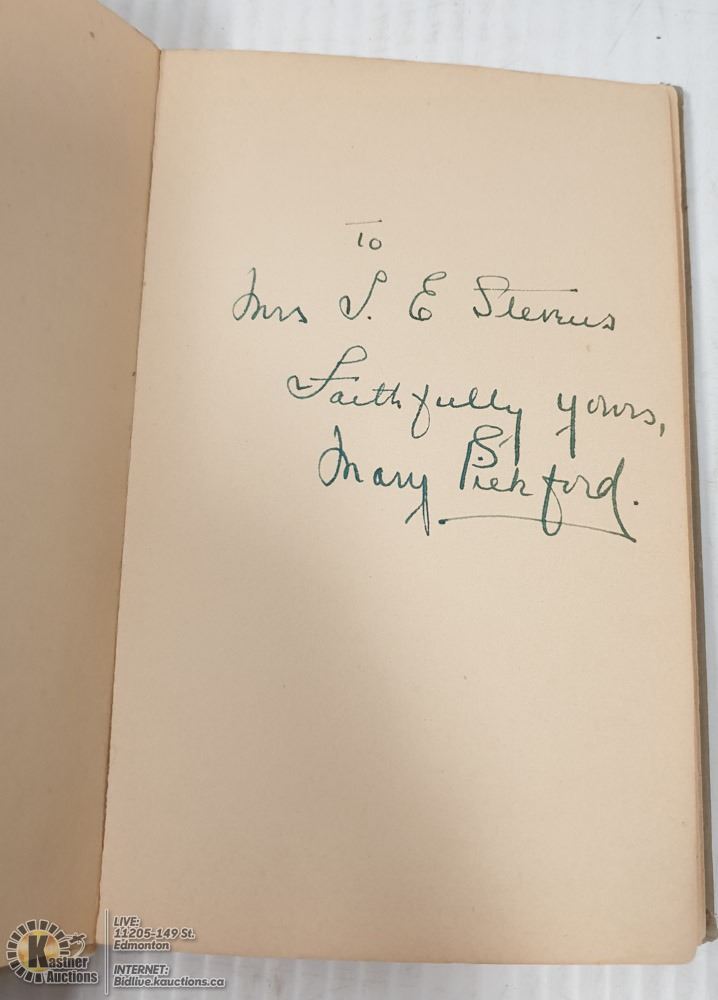 To
Mrs S. E Stevens
Faithfully yours,
Mary Pickford.
Kastner
Auctions
LIVE:
11205-149 St.
Edmonton
INTERNET:
Bidlive.kauctions.ca